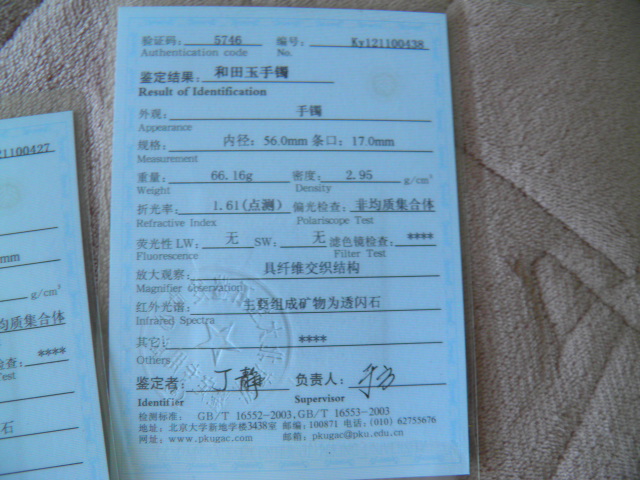 验证码: 5746 编号: Ky121100438
Authentication code No.
鉴定结果: 和田玉手镯
Result of Identification
外观: 手镯
Appearance
规格: 内径: 56.0mm 条口: 17.0mm
Measurement
重量: 66.16g 密度: 2.95 g/cm³
Weight Density
折光率: 1.61(点测) 偏光检查: 非均质集合体
Refractive Index Polariscope Test
荧光性 LW: 无 SW: 无 滤色镜检查: ****
Fluorescence Filter Test
放大观察: 具纤维交织结构
Magnifier Observation
红外光谱: 主要组成矿物为透闪石
Infrared Spectra
其它: ****
Others
鉴定者: 丁静 负责人:
Identifier Supervisor
检测标准: GB/T 16552-2003,GB/T 16553-2003
地址: 北京大学新地学楼3438室 邮编: 100871 电话: (010) 62755676
网址: www.pkugac.com 邮箱: pkugac@pku.edu.cn
21100427
mm
g/cm³
均质集合体
检查: ****
Test
石